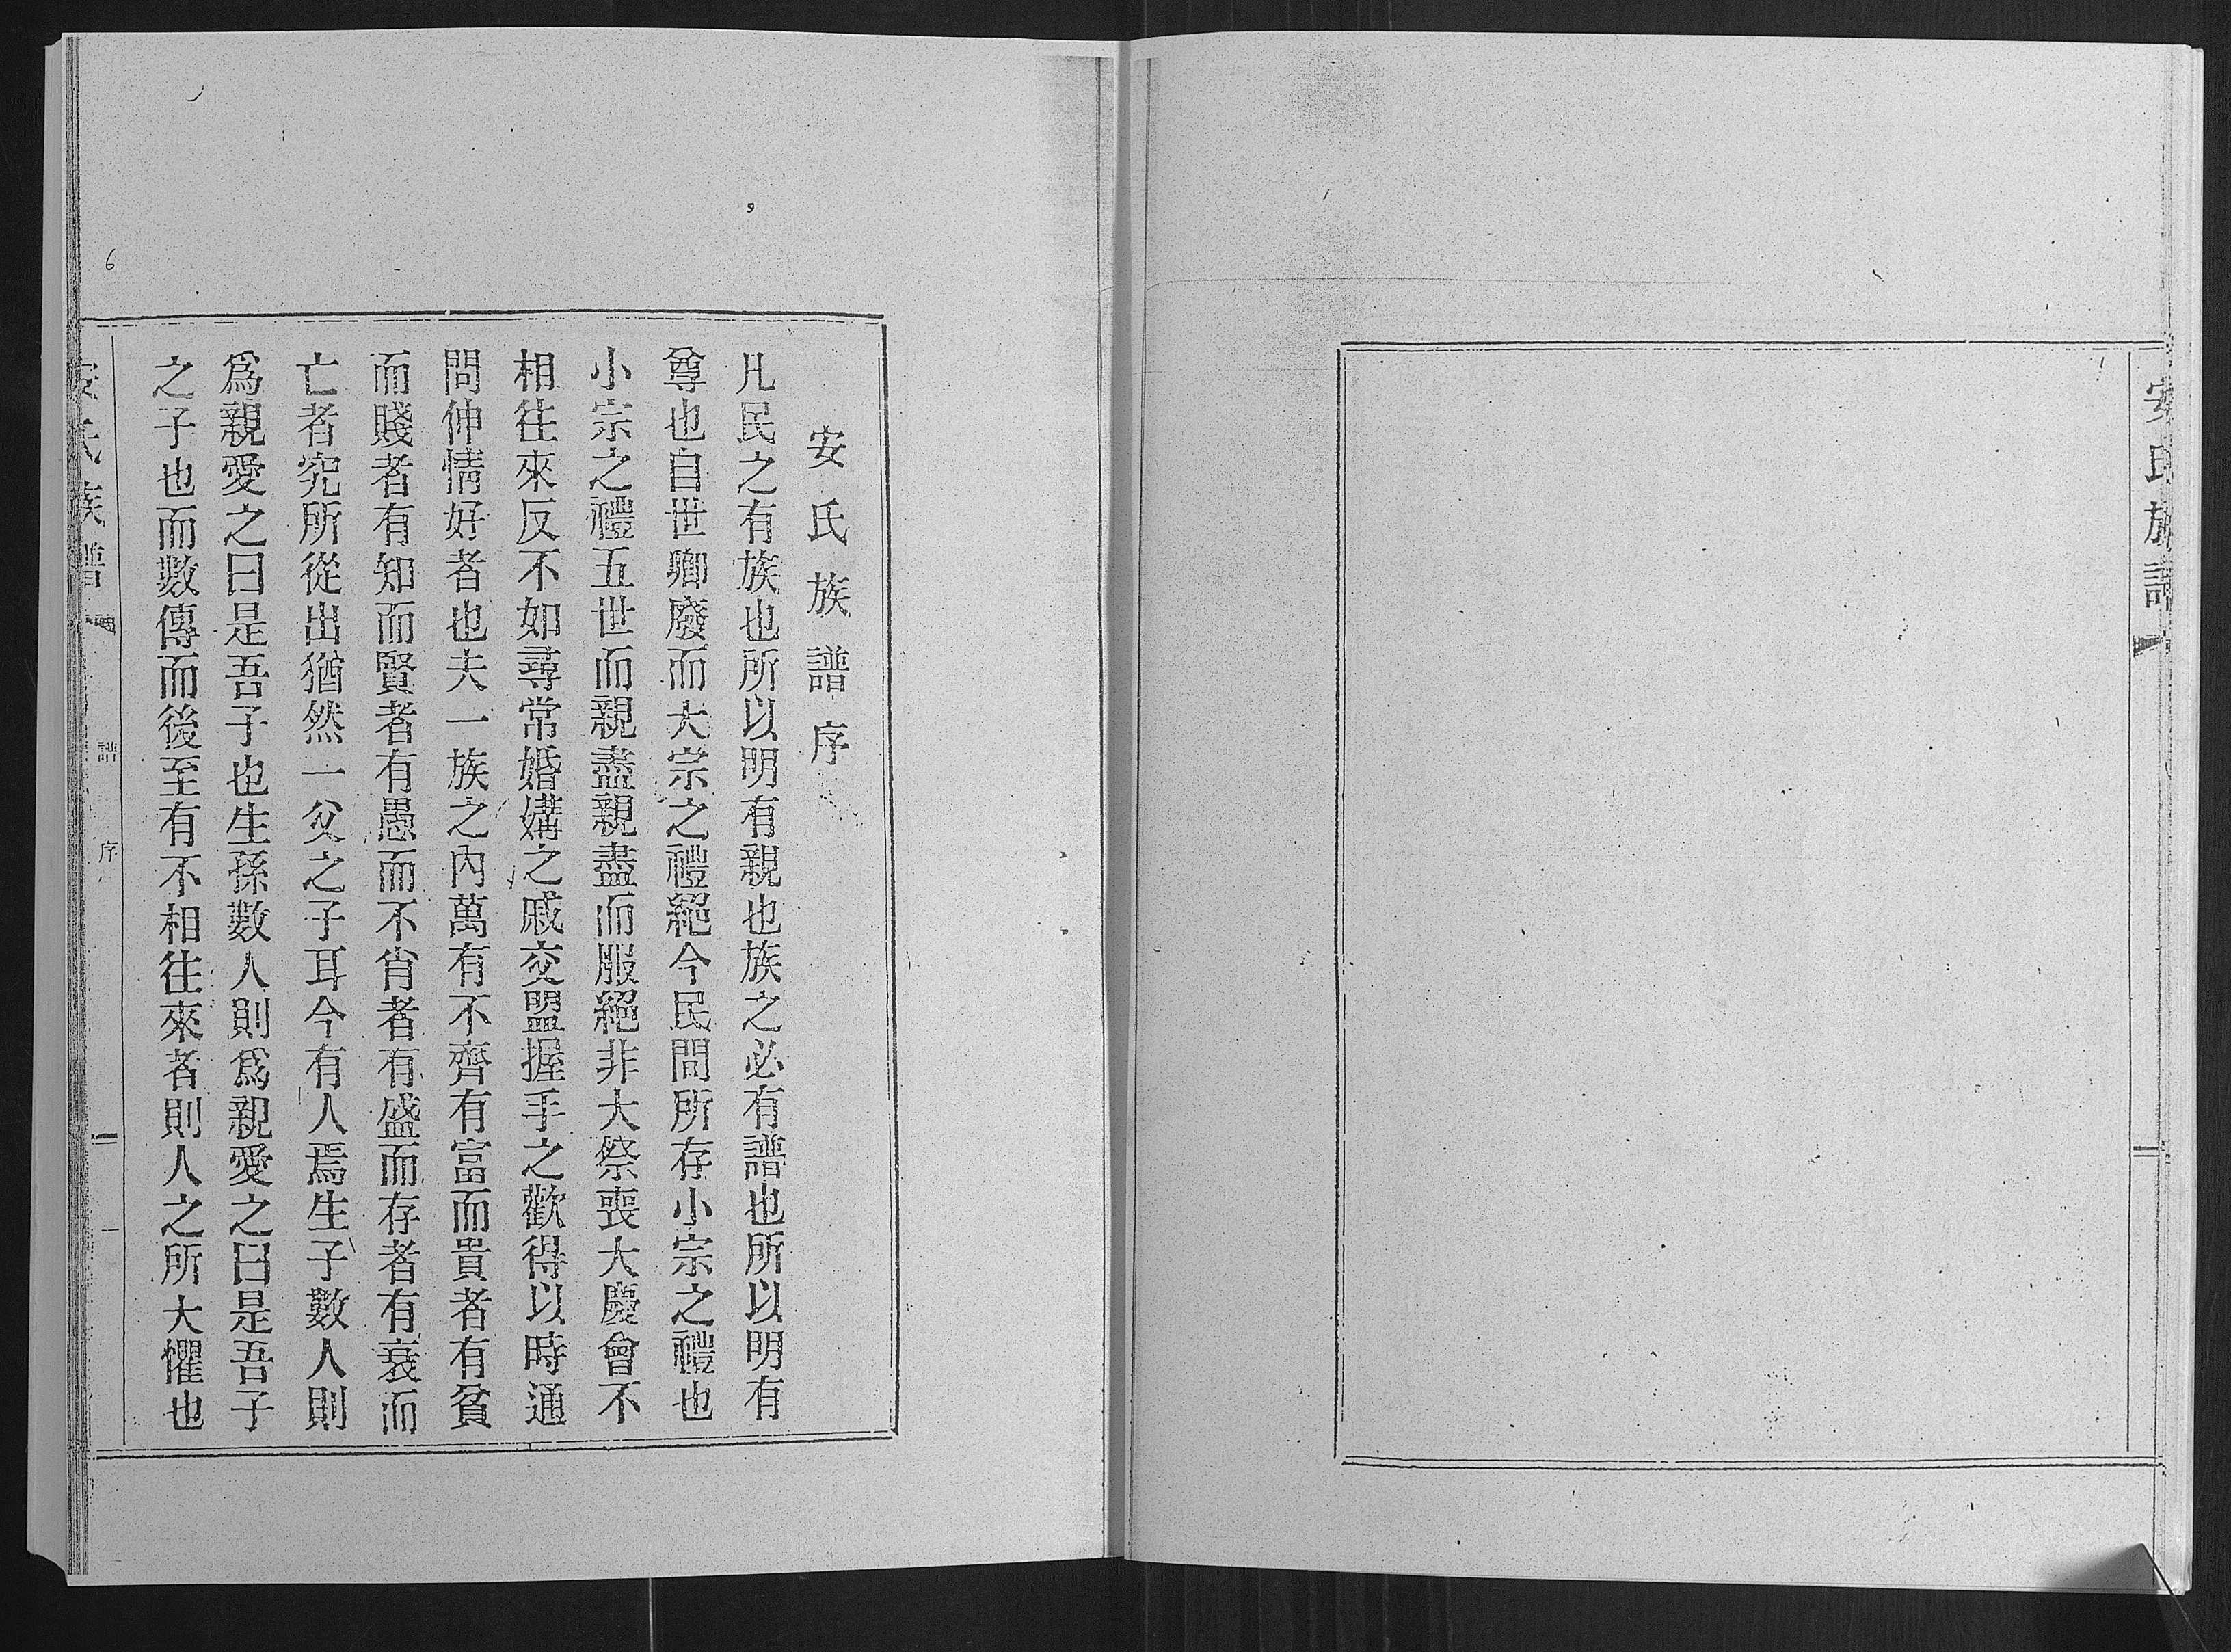 安氏族譜
安氏族譜序
凡民之有族也所以明有親也族之必有譜也所以明有
尊也自世卿廢而大宗之禮絕今民間所存小宗之禮也
小宗之禮五世而親盡親盡而服絕非大祭喪大慶會不
相往來反不如尋常婚媾之戚交盟握手之歡得以時通
問伸情好者也夫一族之內萬有不齊有富而貴者有貧
而賤者有知而賢者有愚而不肖者有盛而存者有衰而
亡者究所從出猶然一父之子耳今有人焉生子數人則
爲親愛之曰是吾子也生孫數人則爲親愛之曰是吾子
之子也而數傳而後至有不相往來者則人之所大懼也
安氏族譜
譜序
一
6